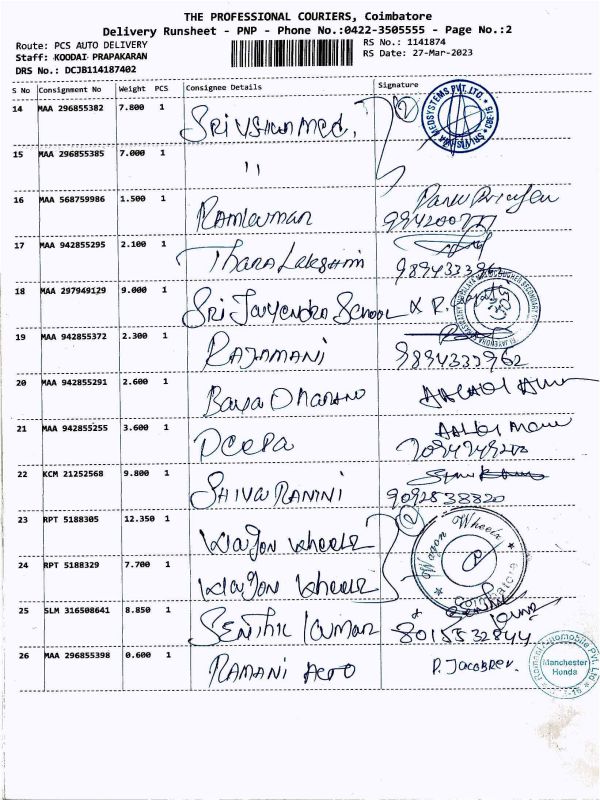 THE PROFESSIONAL COURIERS, Coimbatore
Delivery Runsheet - PNP - Phone No.:0422-3505555 - Page No.:2
Route: PCS AUTO DELIVERY RS No.: 1141874
Staff: KOODAI PRAPAKARAN RS Date: 27-Mar-2023
DRS No.: DCJB114187402
S No Consignment No Weight PCS Consignee Details Signature
14 MAA 296855382 7.800 1 2
15 MAA 296855385 7.000 1 "
16 MAA 568759986 1.500 1 Ramkumar
17 MAA 942855295 2.100 1 Thara Lakshmi
18 MAA 297949129 9.000 1 Sri Jayendra School
19 MAA 942855372 2.300 1 RAJAMANI
9894333962
20 MAA 942855291 2.600 1
21 MAA 942855255 3.600 1 Deepa
22 KCM 21252568 9.800 1
9092538820
23 RPT 5188305 12.350 1 Wagon Wheels 2
24 RPT 5188329 7.700 1 Wagon Wheels
Wagon Wheels Coimbatore
25 SLM 316508641 8.850 1 Senthil Kumar 8015532844
26 MAA 296855398 0.600 1 RAMANI Auto
Manchester
Honda